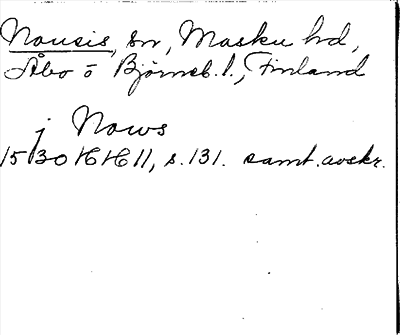 Nousis, sn, Masku hd,
Åbo ō Björneb. l., Finland
j Nows
1530 16/6 HH, s. 131. samt. avskr.